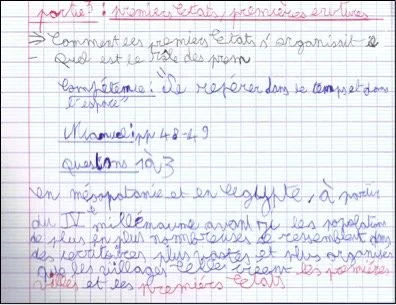 partie 1 : premiers Etats, premières écritures
=> Comment les premiers Etats s'organisent-il
- Quel est le rôle des prem
Compétence : "Se repérer dans le temps et dans
l'espace"
Manuel : pp 48-49
questions 1à3
en mésopotamie et en Egypte, à partir
du IVe millénaire avant les populations
de plus en plus nombreuses se ressemblent dans
des territoires plus vastes et plus organisés
que les villages. Elles créent les premières
villes et les premiers Etats